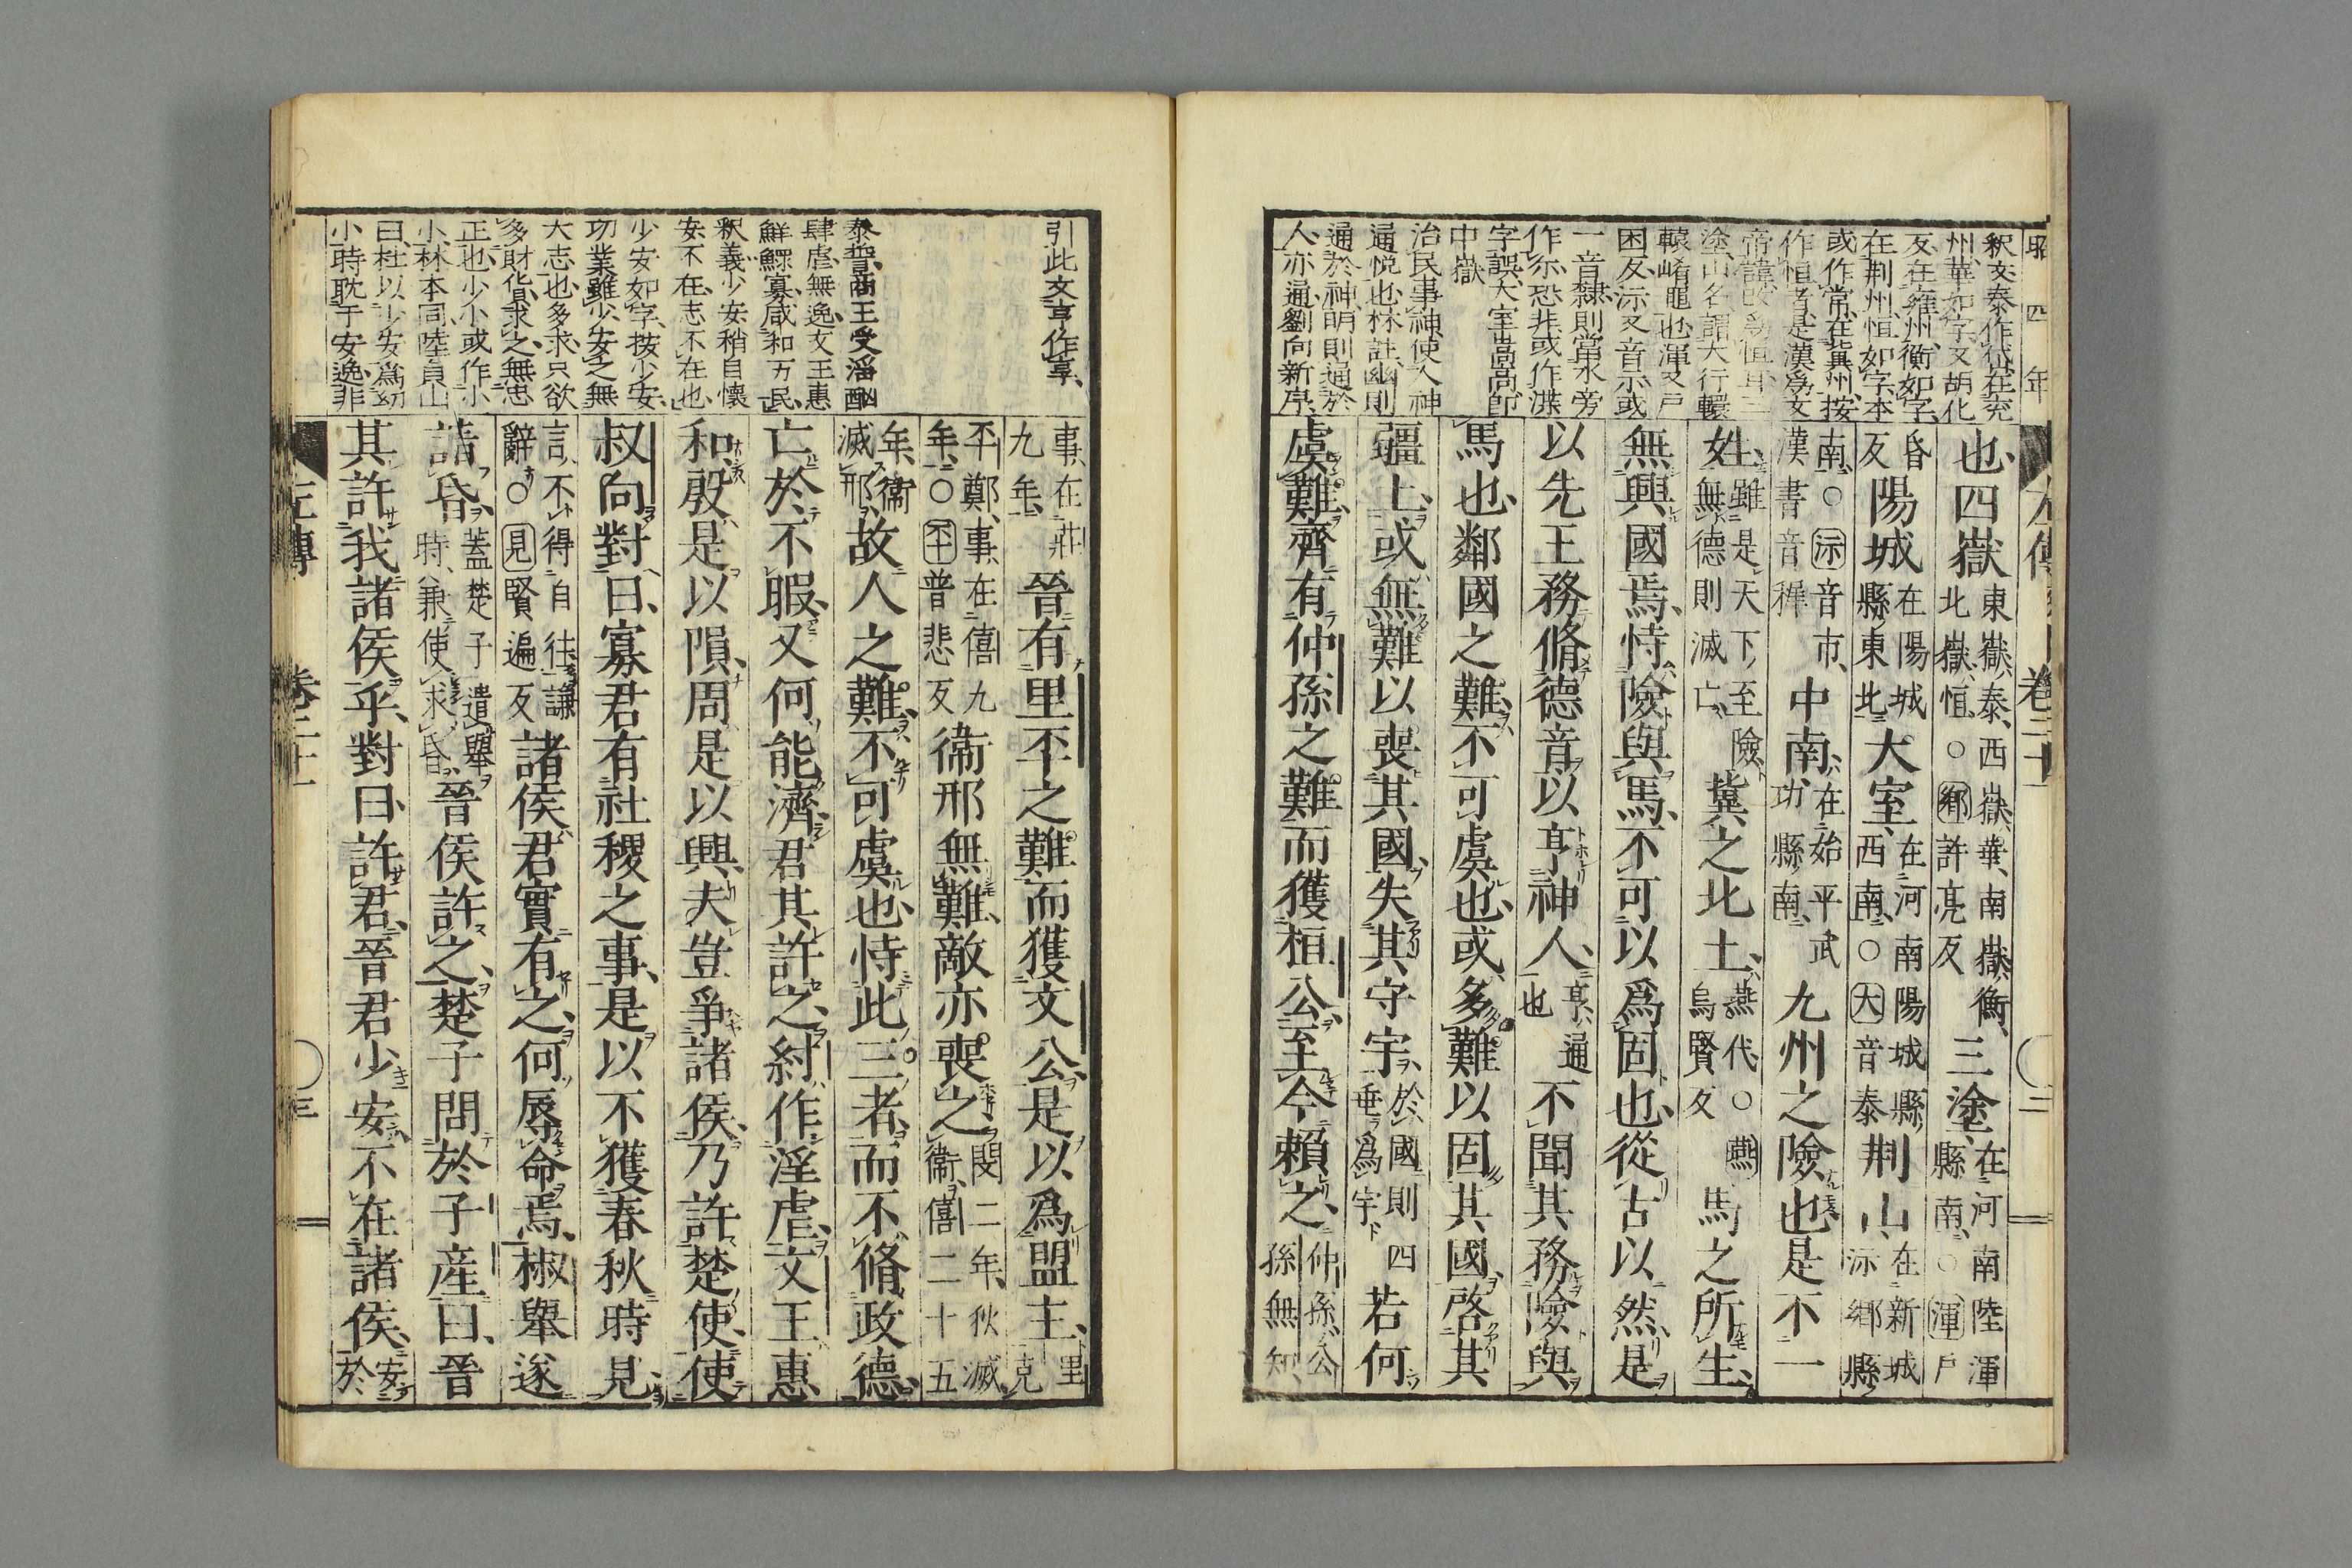 昭四年
釈文泰作岱在兗
州華如字又胡化
反在雍州衡如字
在荆州恒如字本
或作常在冀州按
作恒者是漢爲文
帝諱改爲恒耳三
塗山名謂大行轘
轅崤黽也渾又戸
困反沶又音示或
一音隸則當水旁
作示恐非或作滍
字誤大室嵩高即
中嶽
治民事神使人神
通悅也林註幽則
通於神明則通於
人亦通劉向新序
左傳 卷二十一
也四嶽東嶽泰西嶽華南嶽衡
北嶽恒○鄕許亮反三塗在河南陸渾
縣南○渾戸
昏反陽城在陽城
縣東北大室在河南陽城縣
西南○大音泰荆山在新城
沶鄕縣
南○沶音市
漢書音稺中南在始平武
功縣南九州之險也是不一
姓雖是天下至險
無德則滅亡冀之北土燕代○燕
烏賢反馬之所生
無興國焉恃險與馬不可以爲固也從古以然是
以先王務脩德音以亨神人亨通
也不聞其務險與
馬也鄰國之難不可虞也或多難以固其國啓其
疆土或無難以喪其國失其守宇於國則四
垂爲宇若何
虞難齊有仲孫之難而獲桓公至今賴之仲孫公
孫無知
二
引此文亨作享
泰誓商王受淫酗
肆虐無逸文王惠
鮮鰥寡咸和万民
釈義少安稍自懷
安不在志不在也
少安如字按少安
功業雖少安之無
大志也多求只欲
多財貨求之無忠
正也少小或作小
小林本同陸貞山
曰杜以少安爲幼
小時耽于安逸非
事在莊
九年晉有里丕之難而獲文公是以爲盟主里克
丕鄭事在僖九
年○丕普悲反衞邢無難敵亦喪之閔二年狄滅
衞僖二十五
年衞
滅邢故人之難不可虞也恃此三者而不脩政德
亡於不暇又何能濟君其許之紂作淫虐文王惠
和殷是以隕周是以興夫豈爭諸侯乃許楚使使
叔向對曰寡君有社稷之事是以不獲春秋時見
言不得自往謙
辭○見賢遍反諸侯君實有之何辱命焉椒舉遂
請昏蓋楚子遣舉
時兼使求昏晉侯許之楚子問於子產曰晉
其許我諸侯乎對曰許君晉君少安不在諸侯安於
左傳 卷二十一 三